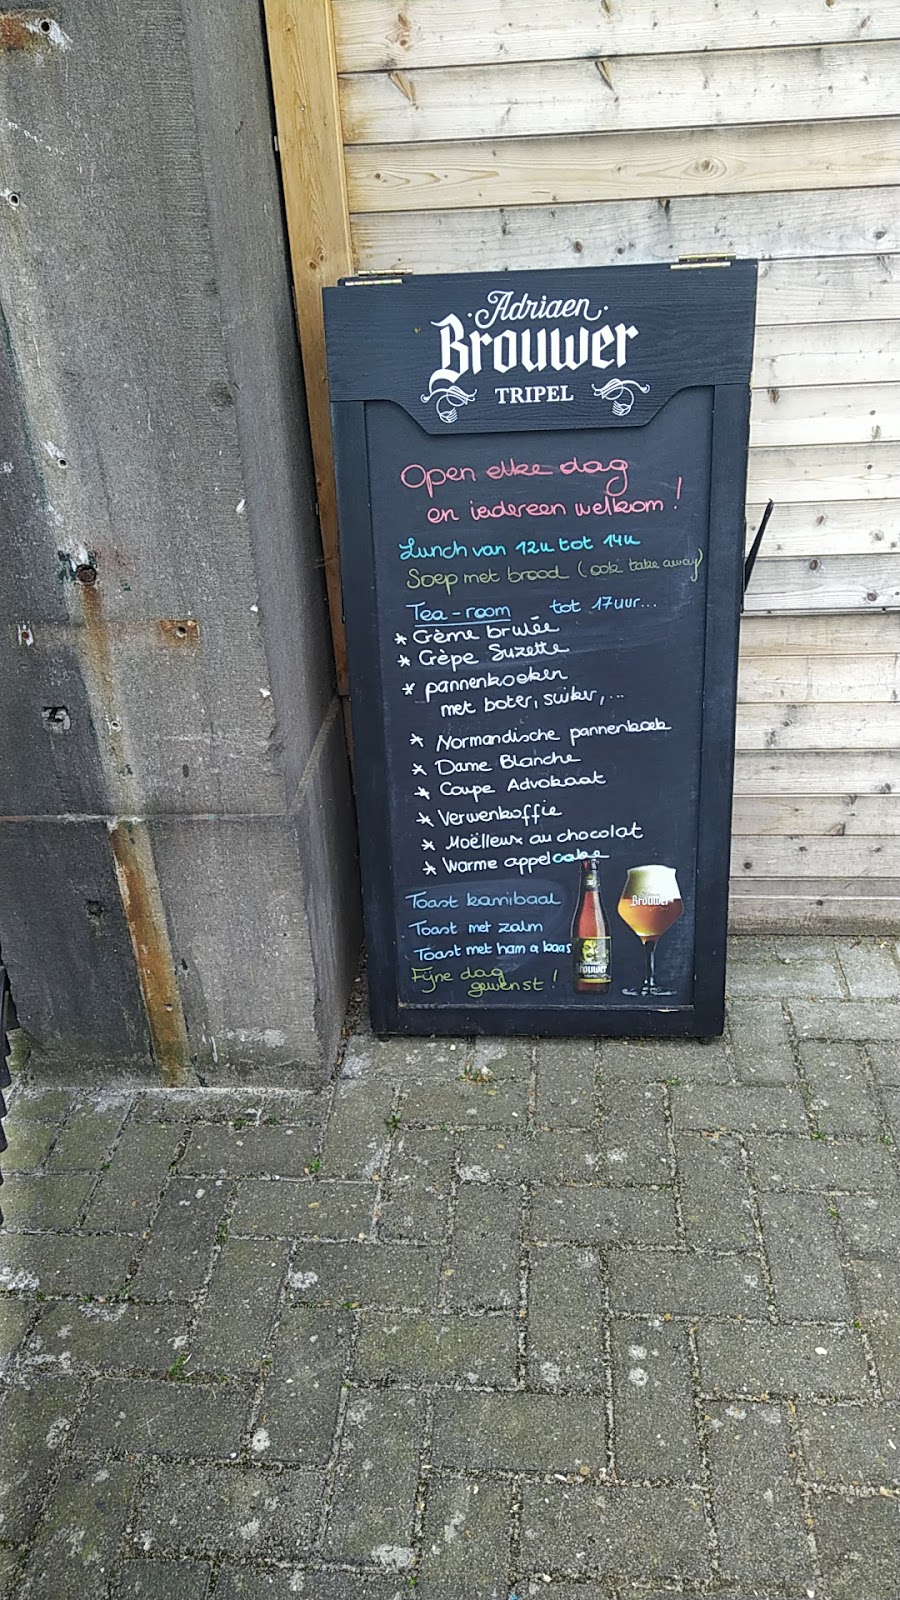 Adriaen
Brouwer
TRIPEL
Open elke dag
en iedereen welkom!
Lunch van 12u tot 14u
Soep met brood (ook take away)
Tea-room tot 17uur...
* Crème brulée
* Crèpe Suzette
* pannenkoeken
met boter, suiker,...
* Normandische pannenkoek
* Dame Blanche
* Coupe Advokaat
* Verwenkoffie
* Moëlleux au chocolat
* Warme appelcake
Toast kannibaal
Toast met zalm
Toast met ham & kaas
Fijne dag
gewenst!
Brouwer
Brouwer
TRIPEL